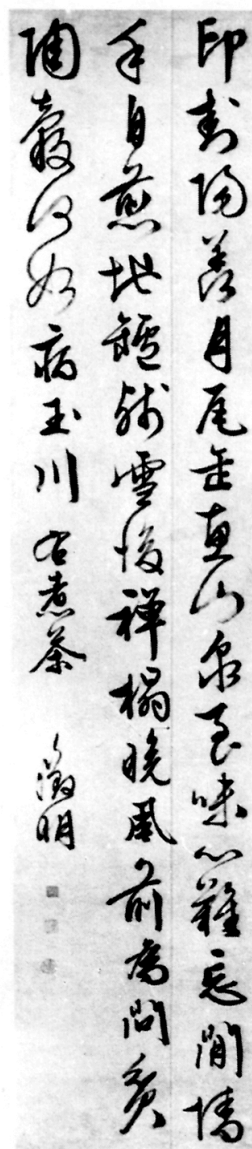 印封陽羨月瓦缶惠山泉至味心難忘閒情
手自煎地鑪殘雪後禪榻晚風前為問貧
陶穀何如病玉川 右煮茶 徵明